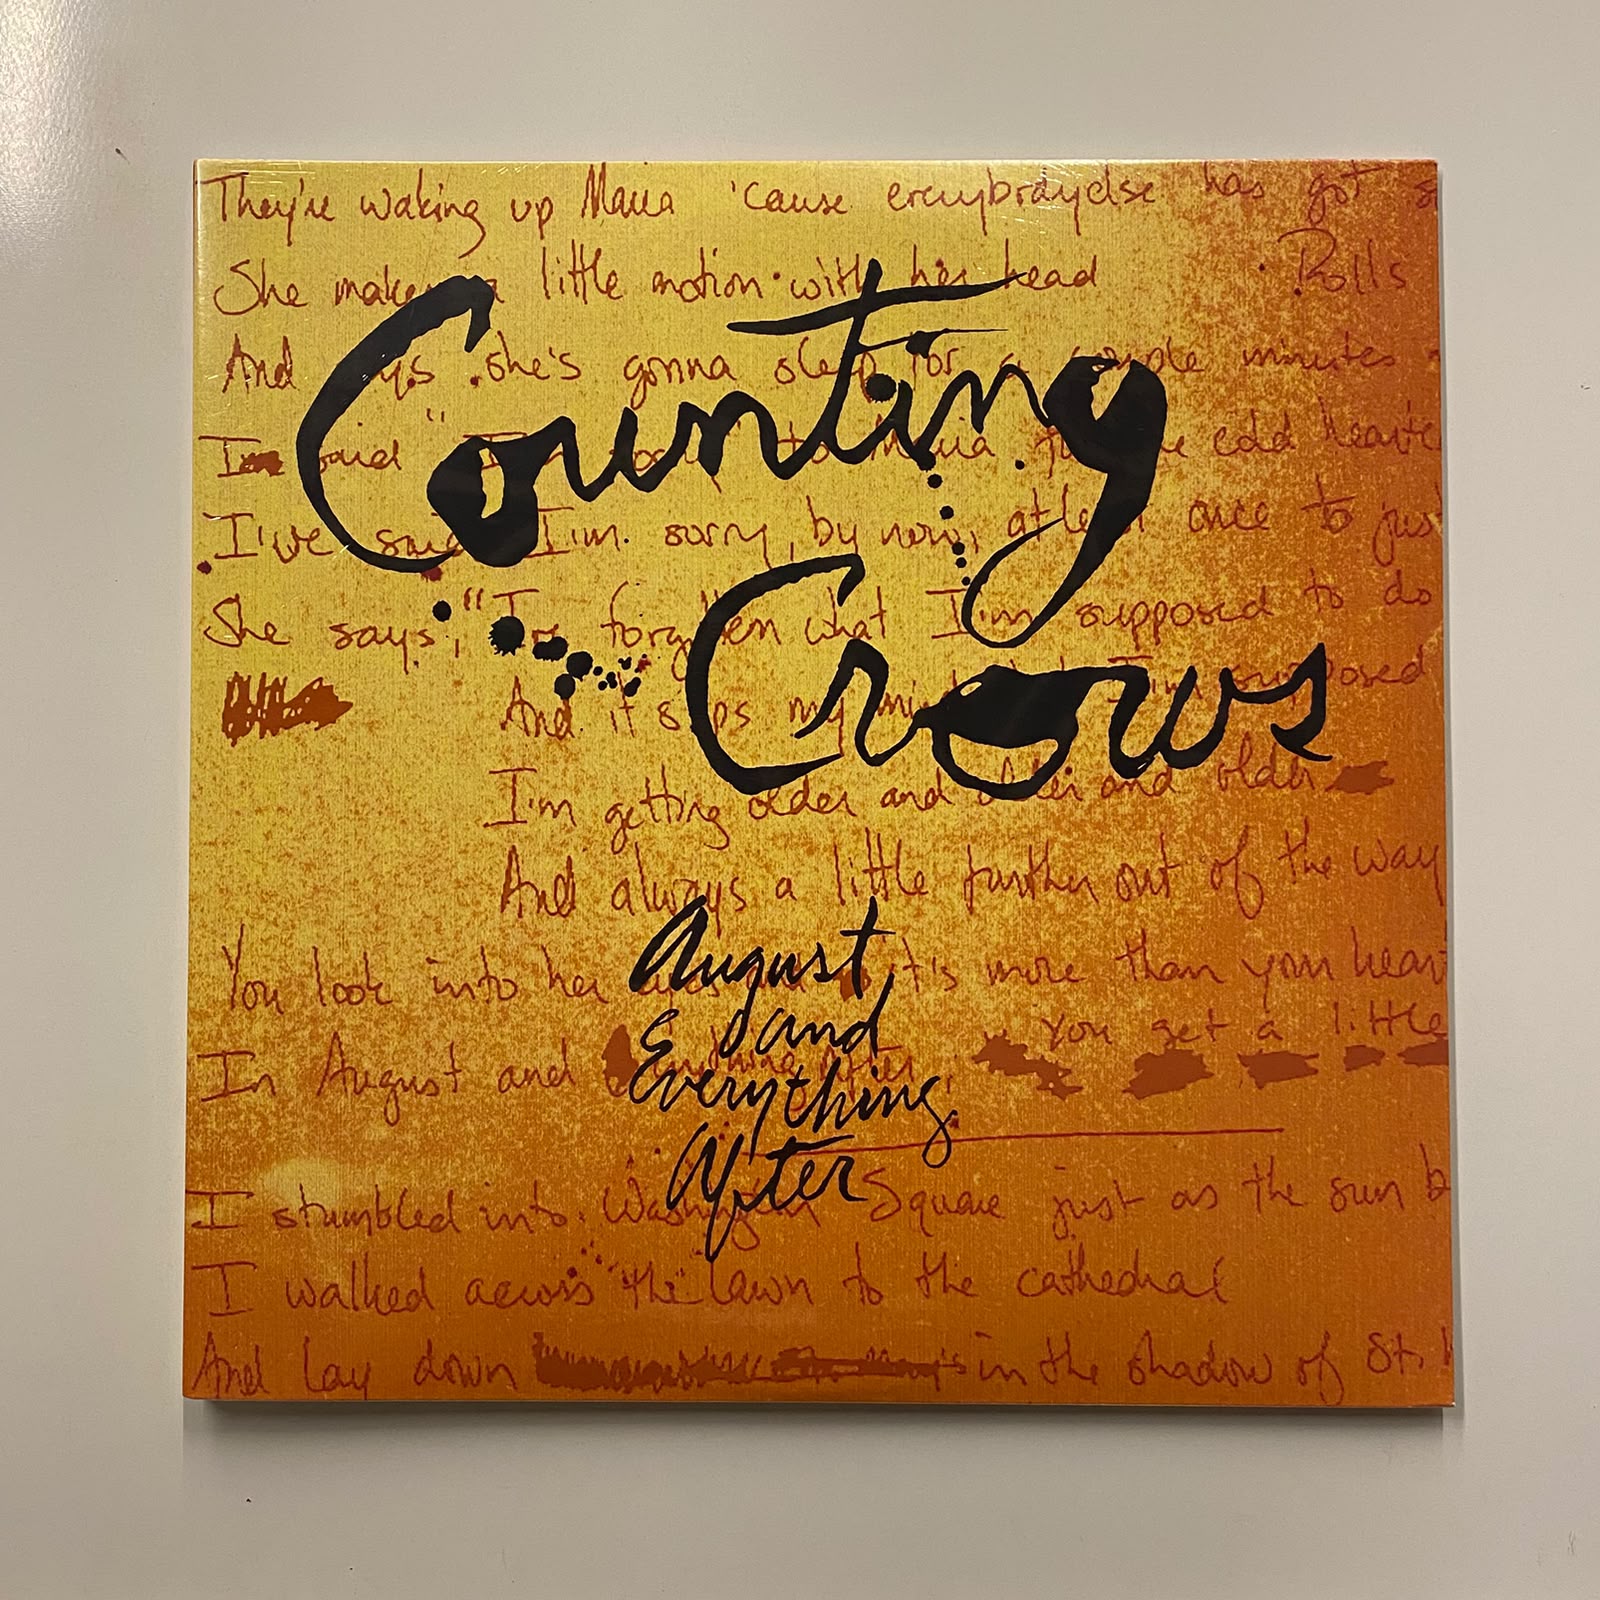 They're waking up Maria 'cause everybrdyelse has got s
She makes a little motion with her head
Rolls
And says she's gonna sleep for a couple minutes
Counting
I'm said "I'm to Maria cold hearted
I've said I'm sorry, by now, at least once to just
Crows
She says, "I've forgotten what I'm supposed to do
And it slips my mind what I'm supposed
I'm getting older and older and older
And always a little further out of the way
You look into her eyes it's more than your heart
You get a little
In August and Everything After,
August
and
Everything
After
I stumbled into Washington Square just as the sun b
I walked across the lawn to the cathedral
And lay down in the shadow of St.